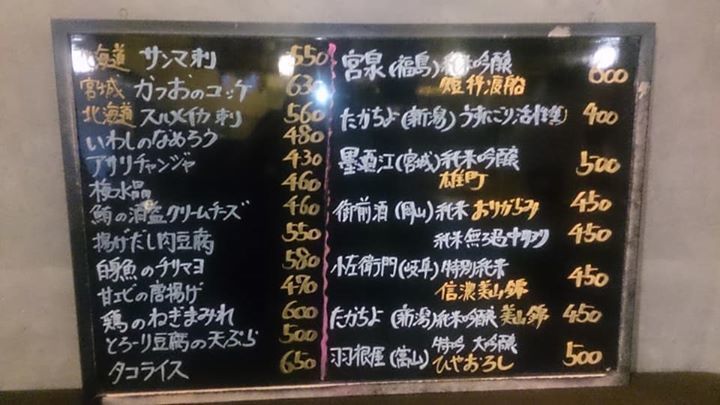 北海道 サンマ刺 550
宮城 かつおのユッケ 630
北海道 スルメイカ刺 560
いわしのなめろう 480
アサリチャンジャ 430
梅水晶 460
鮪の酒盗クリームチーズ 460
揚げだし肉豆腐 550
白身魚のチリマヨ 580
甘エビの唐揚げ 470
鶏のねぎまみれ 600
とろーり豆腐の天ぷら 500
タコライス 650
宮泉(福島)純米吟醸 600
短稈渡船
たかちよ(新潟)うすにごり活性 400
墨廼江(宮城)純米吟醸 500
雄町
御前酒(岡山)純米 おりがらみ 450
純米 無ろ過 450
小左衛門(岐阜)特別純米
信濃美山錦 450
たかちよ(新潟)純米吟醸 美山錦 450
羽根屋(富山) 特吟 大吟醸
ひやおろし 500